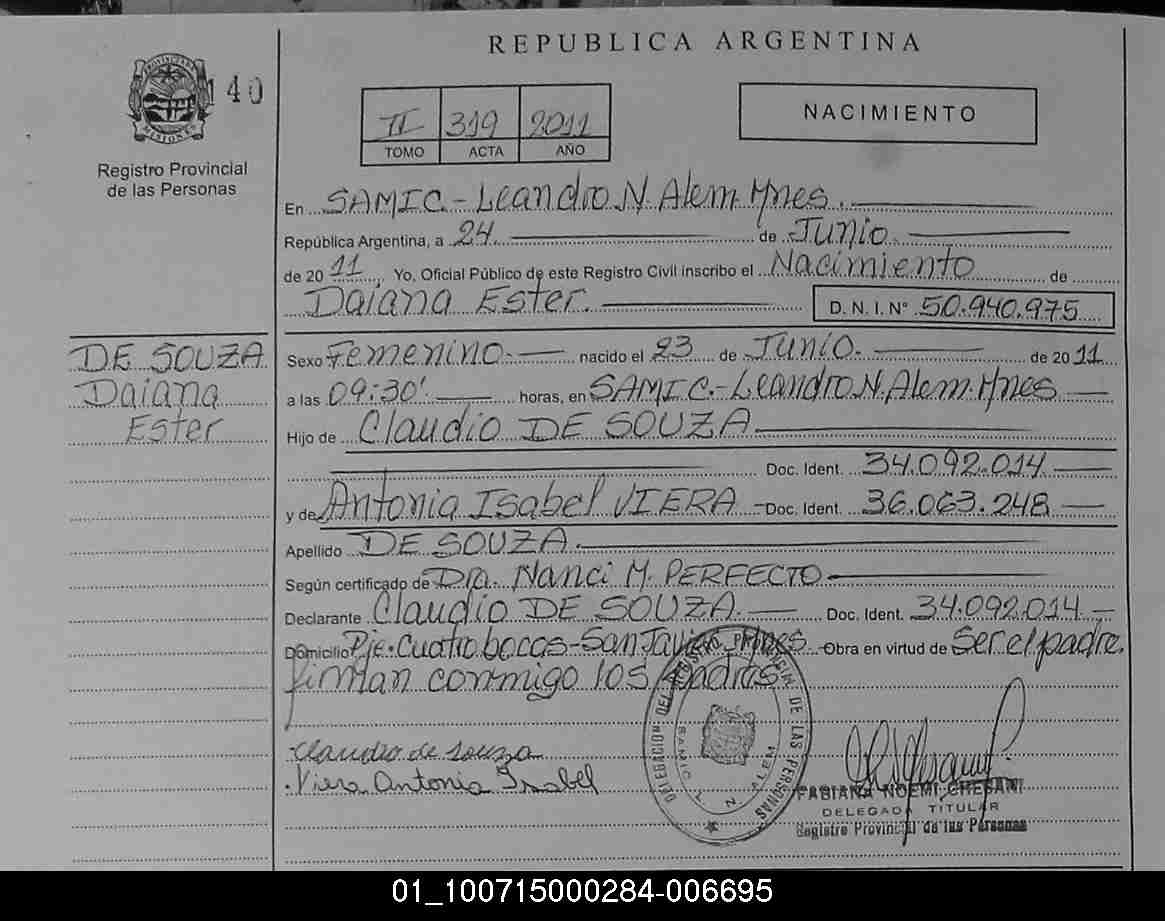 REPUBLICA ARGENTINA
PROVINCIA DE MISIONES
140
Registro Provincial
de las Personas
II 319 2011
TOMO ACTA AÑO
NACIMIENTO
En SAMIC.-Leandro N. Alem Mnes.
República Argentina, a 24. de Junio.
de 20 11 Yo, Oficial Público de este Registro Civil inscribo el Nacimiento de
Daiana Ester. D. N. I. Nº 50.940.975
DE SOUZA
Daiana
Ester
Sexo Femenino. nacido el 23 de Junio. de 20 11
a las 09:30' horas, en SAMIC.-Leandro N. Alem. Mnes
Hijo de Claudio DE SOUZA
Doc. Ident. 34.092.014
y de Antonia Isabel VIERA Doc. Ident. 36.063.248
Apellido DE SOUZA.
Según certificado de Dra. Nanci M. PERFECTO
Declarante Claudio DE SOUZA. Doc. Ident. 34.092.014
Domicilio Pje. Cuatro bocas-San Javier Mnes Obra en virtud de Ser el padre.
firman conmigo los padres
Claudio de souza
Viera Antonia Isabel
DELEGACION DEL REGISTRO PROVINCIAL DE LAS PERSONAS
L. N. ALEM
FABIANA NOEMI CHESANI
DELEGADA TITULAR
Registro Provincial de las Personas
01_100715000284-006695